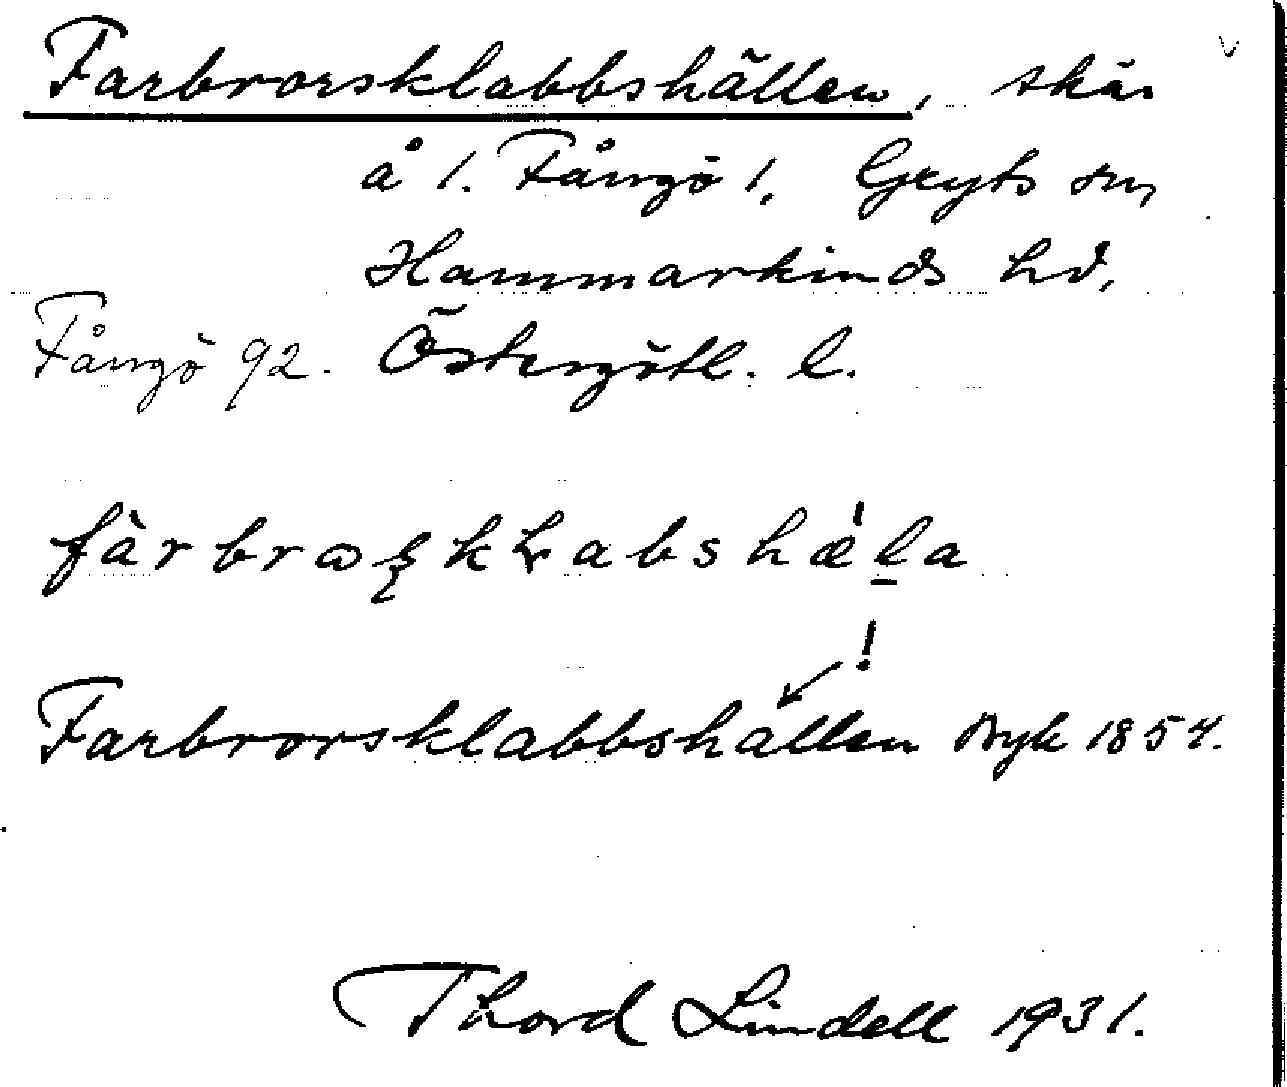 Farbrorsklabbshällen, skär
å 1. Fångö 1, Gryts sn,
Hammarkinds hd,
Fångö 92. Östergötl. l.
fàrbrꞷʂkɽabshǽl̠a
!
Farbrorsklabbshallen Ryk 1854.
Thord Lindell 1931.